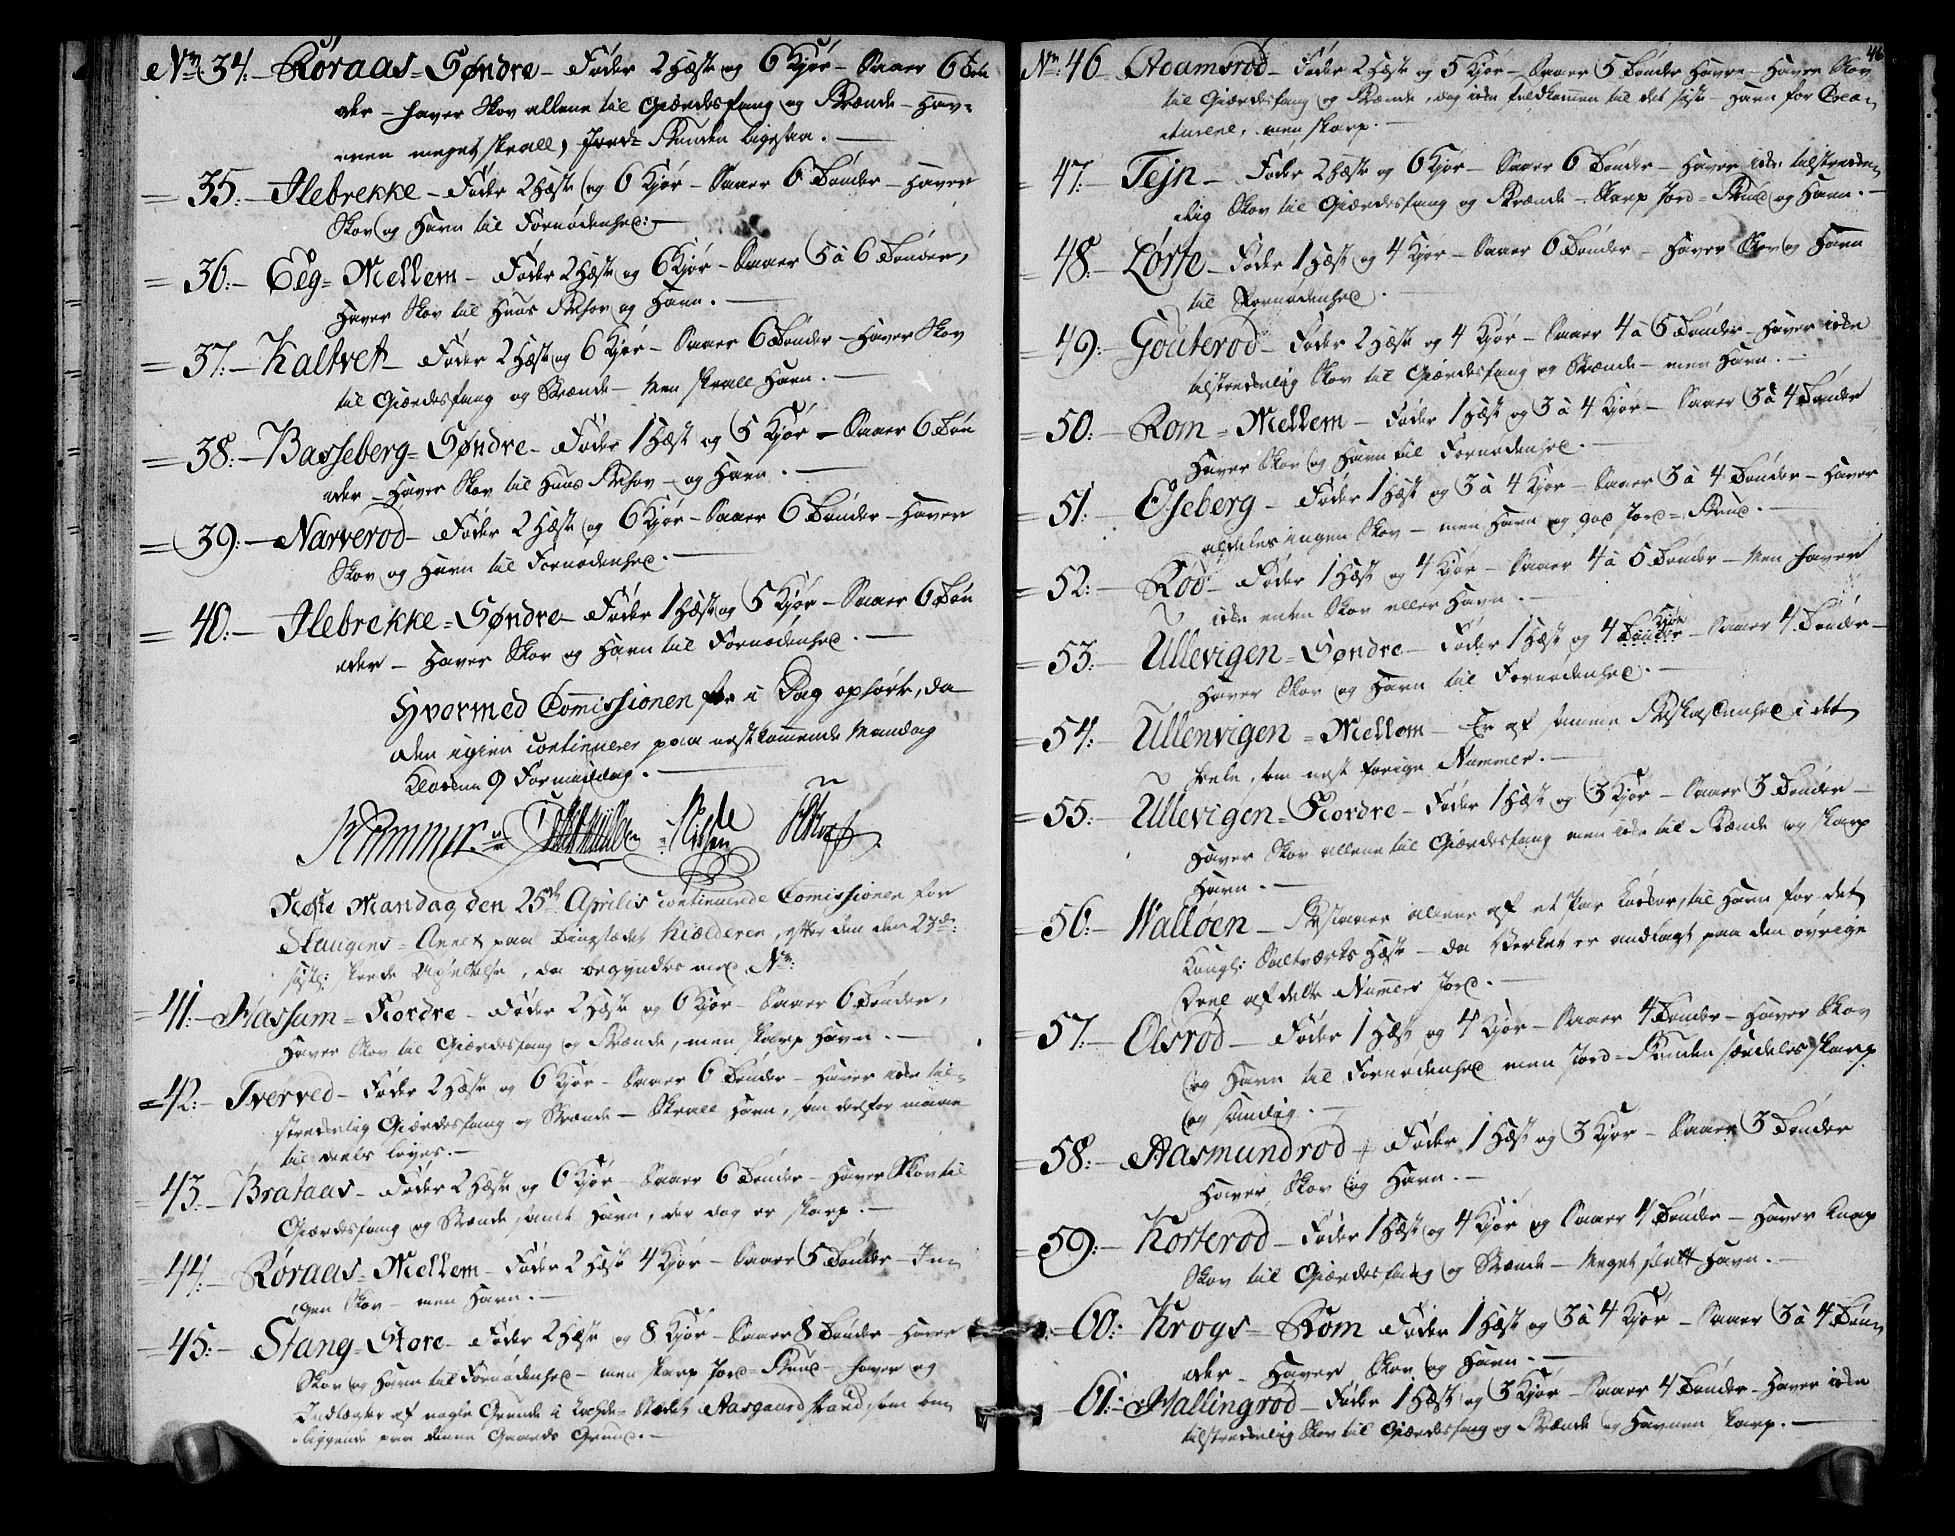 No 34. – Røraas-Søndre – Føder 2 Hæste og 6 Kiør – Saaer 6 Tøn
der – haver Skov allene til Giærdesfang og Brænde – Hav-
nen meget skrall, Jord-Bunden ligesaa. –
= 35. – Ilebrekke – Føder 2 Hæste og 6 Kiør – Saaer 6 Tønder – haver
Skov og Havn til Fornødenhed. –
= 36. – Eeg-Mellem – Føder 2 Hæste og 6 Kiør – Saaer 5 à 6 Tønder,
haver Skov til Huus Behov og Havn. –
= 37. – Kaltvet – Føder 2 Hæste og 6 Kiør – Saaer 6 Tønder – haver Skov
til Giærdesfang og Brænde – Men skrall Havn. –
= 38. – Basseberg-Søndre – Føder 1 Hæst og 5 Kiør – Saaer 6 Tøn
der – haver Skov til Huus Behov – og Havn. –
= 39. – Narverød – Føder 2 Hæste og 6 Kiør – Saaer 6 Tønder – haver
Skov og Havn til Fornødenhed. –
= 40. – Ilebrekke-Søndre – Føder 1 Hæst og 5 Kiør – Saaer 6 Tøn
der – haver Skov og Havn til Fornødenhed. –
Hvormed Comissionen for i Dag ophørte, da
den igien continuerer paa nestkommende Mandag
Klokken 9 Formiddag. –
Neste Mandag den 25de Aprilis continuerede Comissionen for
Slaugens-Annex paa Tingstædet Kiælderen, efter den den 23de
sistl: skeede Udsættelse, da begyndes med No:
= 41. – Massum-Nordre – Føder 2 Hæste og 6 Kiør – Saaer 6 Tønder,
haver Skov til Giærdesfang og Brænde, men skarp Havn. –
= 42. – Tverved – Føder 2 Hæste og 6 Kiør – Saaer 6 Tønder – haver icke til-
streckelig Giærdesfang og Brænde – Skrall Havn, som derfor maae
til deels leyes. –
= 43. – Brataas – Føder 2 Hæste og 6 Kiør – Saaer 6 Tønder – haver Skov til
Giærdesfang og Brænde samt Havn, der dog er skarp. –
= 44. – Røraas-Mellem – Føder 2 Hæste 4 Kiør – Saaer 5 Tønder – In-
gen Skov – men Havn. –
= 45. – Stang-Store – Føder 2 Hæste og 8 Kiør – Saaer 8 Tønder – haver
Skov og Havn til Fornødenhed – men skarp Jord-Bund – haver og
Indtægter af nogle Grunde i Aasgaardstrand, som ere
liggende paa denne Gaards Grund. –
46
No 46 – Adamsrød – Føder 2 Hæste og 5 Kiør – Saaer 5 Tønder Havre – Haver Skov
til Giærdesfang og Brænde, dog icke fuldkommen til det siste – Havn for Crea-
turene, men skarp. –
= 47. – Tejn – Føder 2 Hæste og 6 Kiør – Saaer 6 Tønder – haver icke tilstrecke-
lig Skov til Giærdesfang og Brænde – Skarp Jord-Bund og Havn. –
= 48. – Lørte – Føder 1 Hæst og 4 Kiør – Saaer 6 Tønder – haver Skov og Havn
til Fornødenhed. –
= 49. – Gouterød – Føder 2 Hæste og 4 Kiør – Saaer 4 à 5 Tønder – haver icke
tilstreckelig Skov til Giærdesfang og Brænde – men Havn. –
= 50. – Rom-Mellem – Føder 1 Hæst og 3 à 4 Kiør – Saaer 3 à 4 Tønder
haver Skov og Havn til Fornødenhed. –
= 51. – Oseberg – Føder 1 Hæst og 3 à 4 Kiør – Saaer 3 à 4 Tønder – haver
aldeles ingen Skov – men Havn og god Jord-Bund. –
= 52. – Rød – Føder 1 Hæst og 4 Kiør – Saaer 4 à 5 Tønder – Men haver
icke enten Skov eller Havn. –
= 53. – Ullevigen-Søndre – Føder 1 Hæst og 4 Tønder Kiør – Saaer 4 Tønder –
haver Skov og Havn til Fornødenhed. –
= 54. – Ullenvigen-Mellom – Er af samme Beskaffenhed i det
heele, som nest forige Nummer. –
= 55. – Ullevigen-Nordre – Føder 1 Hæst og 3 Kiør – Saaer 3 Tønder –
haver Skov allene til Giærdesfang men icke til Brænde og skarp
Havn. –
= 56. – Walløen – Bestaaer allene af et Par Løkker, til Havn for det
Kongl: Saltværks Hæste – da Verket er andlagt paa den øvrige
Deel af dette Nummer Jord. –
= 57. – Olsrød – Føder 1 Hæst og 4 Kiør – Saaer 4 Tønder – haver Skov
og Havn til Fornødenhed men Jord-Bunden særdeles skarp
og sandig. –
= 58. – Aasmundrød – Føder 1 Hæst og 3 Kiør – Saaer 3 Tønder
haver Skov og Havn. –
= 59. – Korterød – Føder 1 Hæst og 4 Kiør og Saaer 4 Tønder – haver knap
Skov til Giærdesfang og Brænde – Meget slett Havn. –
60. – Krogs-Rom Føder 1 Hæst og 3 à 4 Kiør – Saaer 3 à 4 Tøn-
der – haver Skov og Havn. –
61. – Hallingrød – Føder 1 Hæst og 3 Kiør – Saaer 4 Tønder – haver icke
tilstreckelig Skov til Giærdesfang og Brænde og Havnen skarp. –